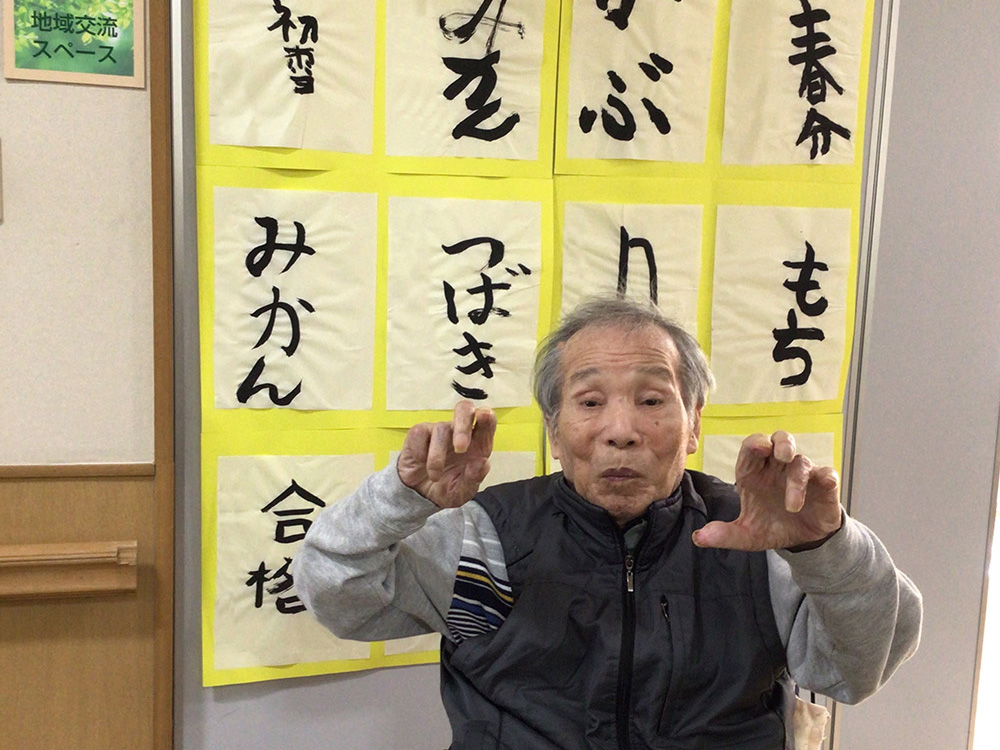 地域交流
スペース
初
ぶ
春分
みかん
つばき
もち
合格